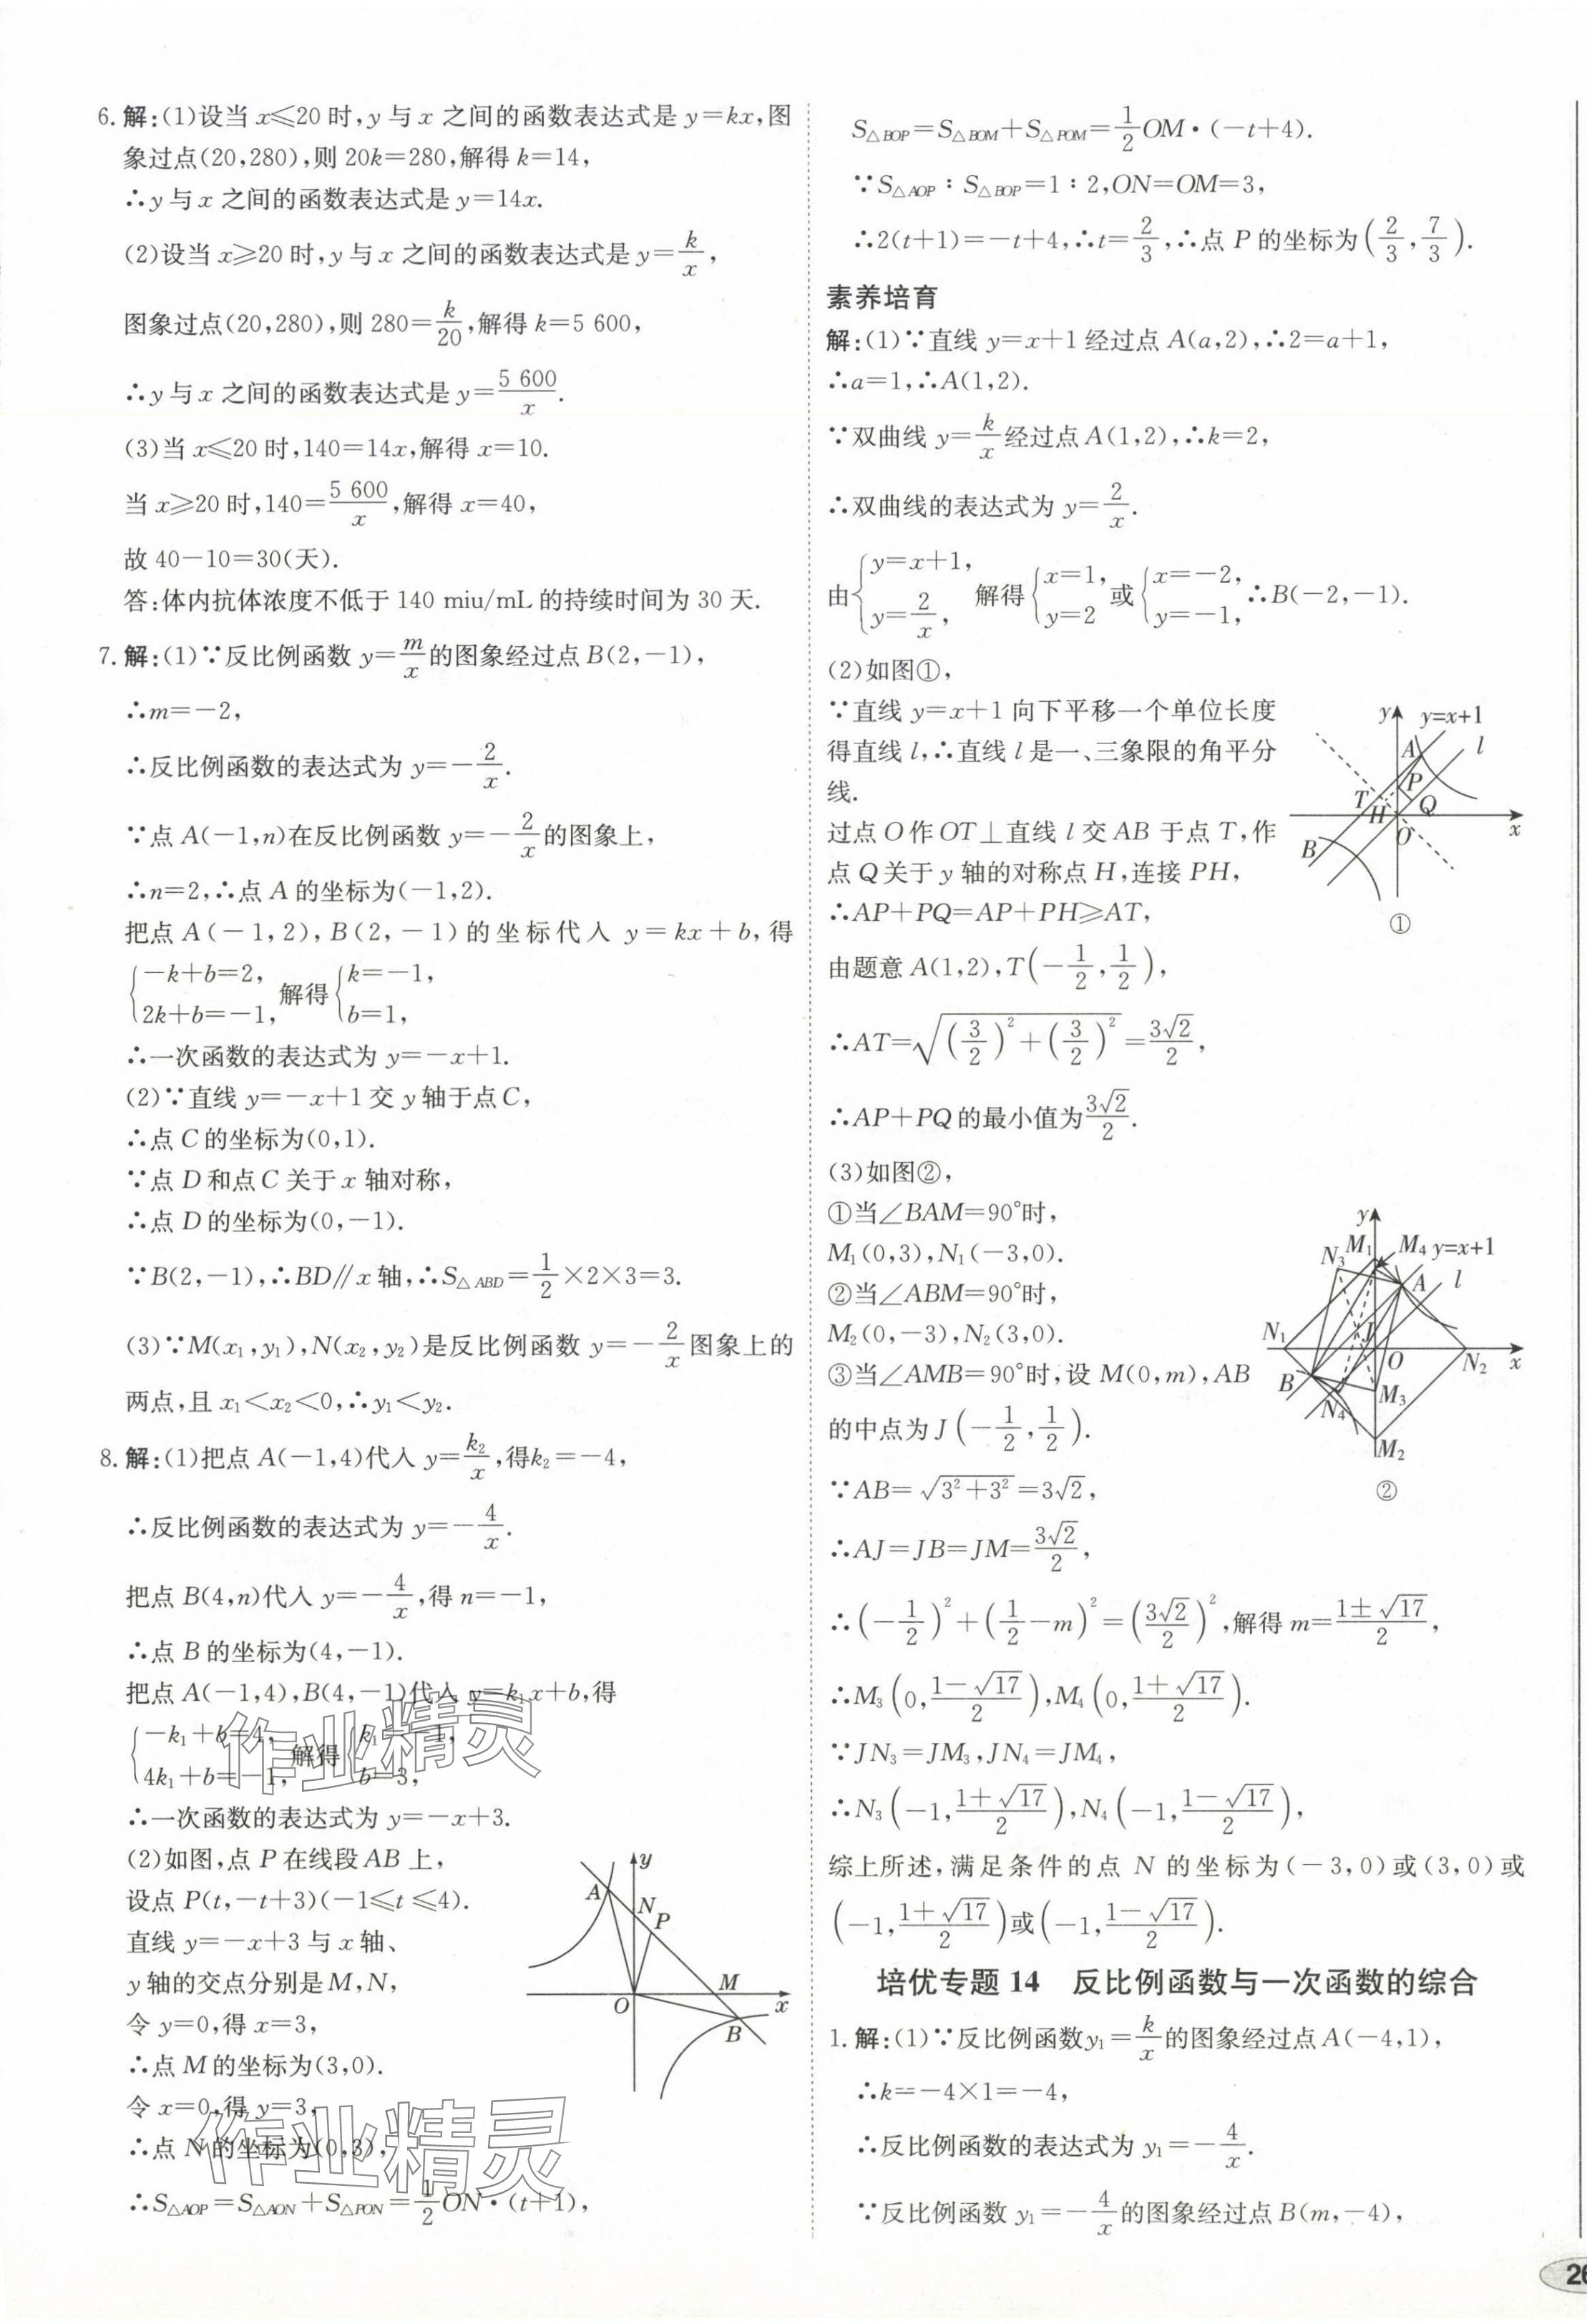 6. 解:(1)设当 x≤20 时,y 与 x 之间的函数表达式是 y=kx,图
象过点(20,280),则 20k=280,解得 k=14,
∴y 与 x 之间的函数表达式是 y=14x.
(2)设当 x≥20 时,y 与 x 之间的函数表达式是 y=k/x,
图象过点(20,280),则 280=k/20,解得 k=5 600,
∴y 与 x 之间的函数表达式是 y=5 600/x.
(3)当 x≤20 时,140=14x,解得 x=10.
当 x≥20 时,140=5 600/x,解得 x=40,
故 40-10=30(天).
答:体内抗体浓度不低于 140 miu/mL 的持续时间为 30 天.
7. 解:(1)∵反比例函数 y=m/x的图象经过点 B(2,-1),
∴m=-2,
∴反比例函数的表达式为 y=-2/x.
∵点 A(-1,n)在反比例函数 y=-2/x的图象上,
∴n=2,∴点 A 的坐标为(-1,2).
把点 A(-1,2),B(2,-1)的坐标代入 y=kx+b,得
{-k+b=2, 2k+b=-1, 解得{k=-1, b=1,
∴一次函数的表达式为 y=-x+1.
(2)∵直线 y=-x+1 交 y 轴于点 C,
∴点 C 的坐标为(0,1).
∵点 D 和点 C 关于 x 轴对称,
∴点 D 的坐标为(0,-1).
∵B(2,-1),∴BD∥x 轴,∴S△ABD=1/2×2×3=3.
(3)∵M(x₁,y₁),N(x₂,y₂)是反比例函数 y=-2/x图象上的
两点,且 x₁<x₂<0,∴y₁<y₂.
8. 解:(1)把点 A(-1,4)代入 y=k₂/x,得k₂=-4,
∴反比例函数的表达式为 y=-4/x.
把点 B(4,n)代入 y=-4/x,得 n=-1,
∴点 B 的坐标为(4,-1).
把点 A(-1,4),B(4,-1)代入 y=k₁x+b,得
{-k₁+b=4, 4k₁+b=-1, 解得{k₁=-1, b=3,
∴一次函数的表达式为 y=-x+3.
(2)如图,点 P 在线段 AB 上,
设点 P(t,-t+3)(-1≤t≤4).
直线 y=-x+3 与 x 轴、
y 轴的交点分别是 M,N,
令 y=0,得 x=3,
∴点 M 的坐标为(3,0).
令 x=0,得 y=3,
∴点 N 的坐标为(0,3),
∴S△AOP=S△AON+S△PON=1/2ON·(t+1),
y
A
N
P
M
O
x
B
作业精灵
作业精灵
S△BOP=S△BOM+S△POM=1/2OM·(-t+4).
∵S△AOP∶S△BOP=1∶2,ON=OM=3,
∴2(t+1)=-t+4,∴t=2/3,∴点 P 的坐标为(2/3,7/3).
素养培育
解:(1)∵直线 y=x+1 经过点 A(a,2),∴2=a+1,
∴a=1,∴A(1,2).
∵双曲线 y=k/x经过点 A(1,2),∴k=2,
∴双曲线的表达式为 y=2/x.
由{y=x+1, y=2/x, 解得{x=1, y=2 或{x=-2, y=-1, ∴B(-2,-1).
(2)如图①,
∵直线 y=x+1 向下平移一个单位长度
得直线 l,∴直线 l 是一、三象限的角平分
线.
过点 O 作 OT⊥直线 l 交 AB 于点 T,作
点 Q 关于 y 轴的对称点 H,连接 PH,
∴AP+PQ=AP+PH≥AT,
由题意 A(1,2),T(-1/2,1/2),
∴AT=√((3/2)²+(3/2)²)=3√2/2,
∴AP+PQ 的最小值为3√2/2.
y
y=x+1
A
l
P
T
H
Q
O
x
B
①
(3)如图②,
①当∠BAM=90°时,
M₁(0,3),N₁(-3,0).
②当∠ABM=90°时,
M₂(0,-3),N₂(3,0).
③当∠AMB=90°时,设 M(0,m),AB
的中点为 J(-1/2,1/2).
∵AB=√(3²+3²)=3√2,
∴AJ=JB=JM=3√2/2,
∴(-1/2)²+(1/2-m)²=(3√2/2)²,解得 m=(1±√17)/2,
∴M₃(0,(1-√17)/2),M₄(0,(1+√17)/2).
∵JN₃=JM₃,JN₄=JM₄,
∴N₃(-1,(1+√17)/2),N₄(-1,(1-√17)/2),
综上所述,满足条件的点 N 的坐标为(-3,0)或(3,0)或
(-1,(1+√17)/2)或(-1,(1-√17)/2).
y
N₃
M₁
M₄
y=x+1
A
l
N₁
J
O
N₂
x
B
N₄
M₃
M₂
②
培优专题 14 反比例函数与一次函数的综合
1. 解:(1)∵反比例函数y₁=k/x的图象经过点 A(-4,1),
∴k=-4×1=-4,
∴反比例函数的表达式为 y₁=-4/x.
∵反比例函数 y₁=-4/x的图象经过点 B(m,-4),
26